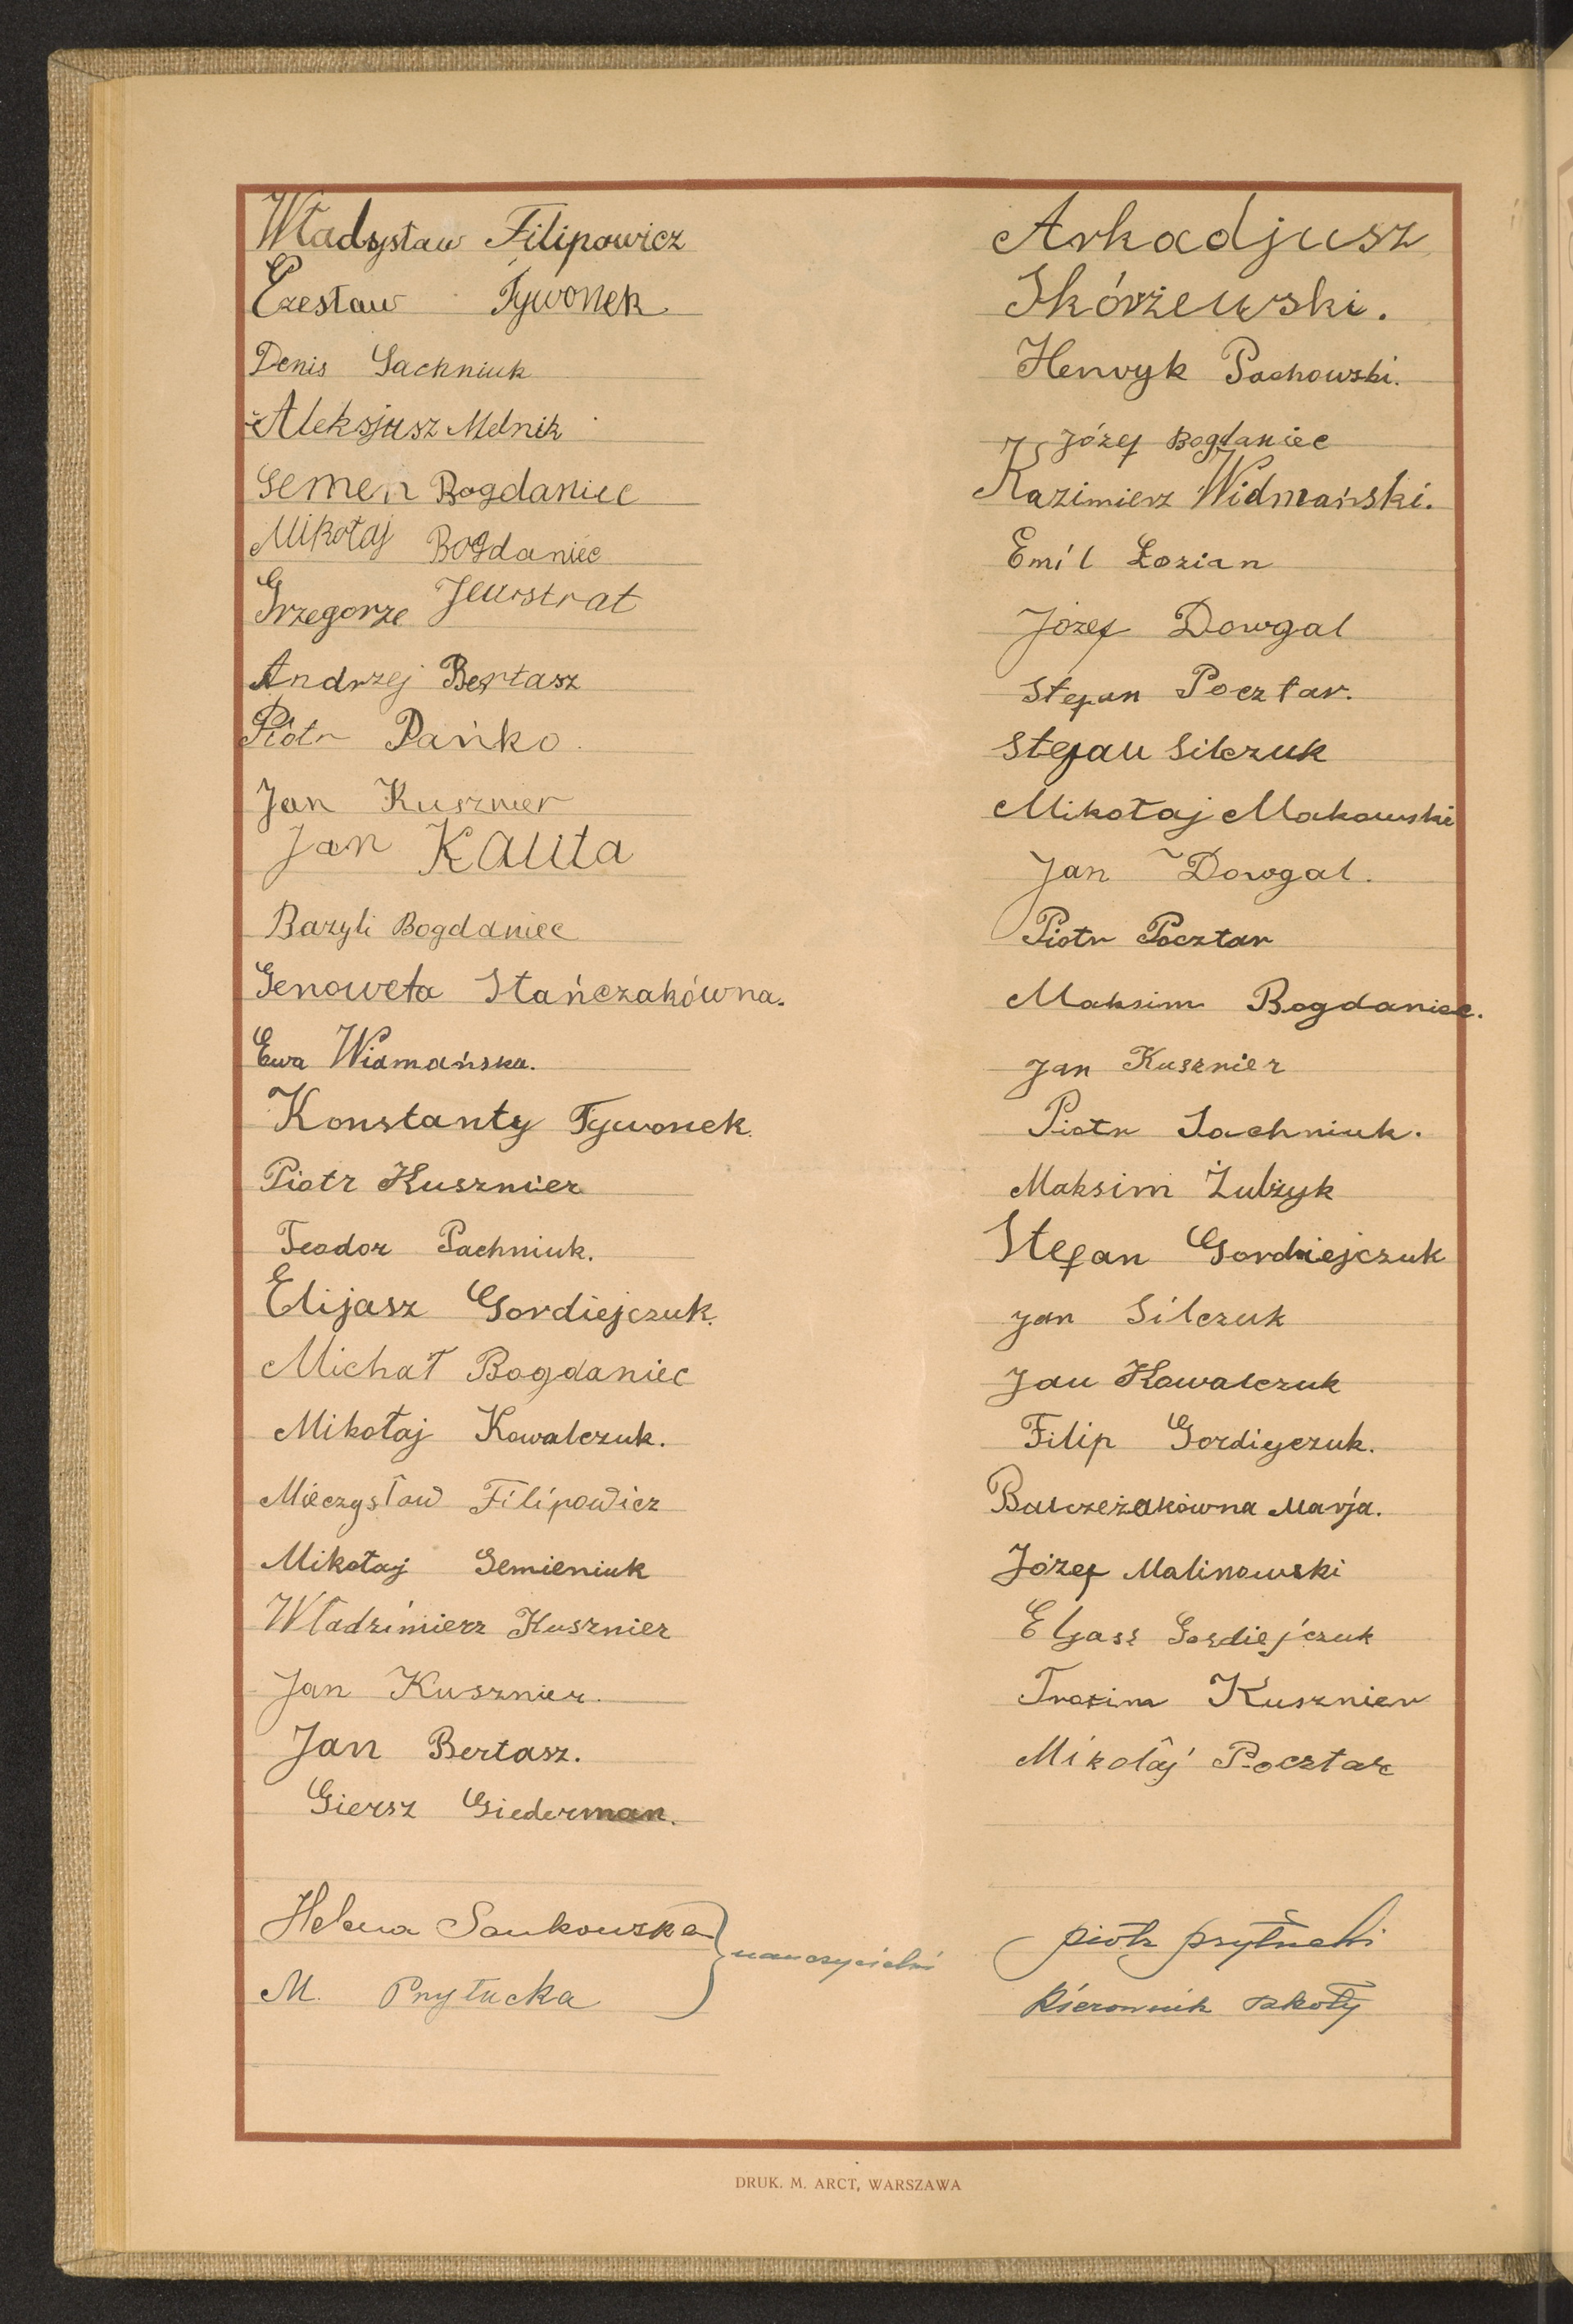 Władysław Filipowicz
Czesław Tywonek
Denis Sachniuk
Aleksjusz Melnik
Semen Bogdaniec
Mikołaj Bogdaniec
Grzegorze Jewstrat
Andrzej Bertasz
Piotr Pańko.
Jan Kusznier
Jan Kauta
Bazyli Bogdaniec
Genowefa Stańczakówna.
Ewa Widmańska.
Konstanty Tywonek.
Piotr Kusznier
Teodor Pachniuk.
Elijasz Gordiejczuk.
Michał Bogdaniec
Mikołaj Kowalczuk.
Mieczysław Filipowicz
Mikołaj Semieniuk
Władzimierz Kusznier
Jan Kusznier.
Jan Bertasz.
Giersz Giederman.
Helena Sankowska
M. Pryłucka
nauczycielki
Arkadjusz
Skórzewski.
Henryk Pachowski.
Józef Bogdaniec
Kazimierz Widmański.
Emil Łozian
Józef Dowgal
Stefan Pocztar.
Stefan Silczuk
Mikołaj Makowski
Jan Dowgal.
Piotr Pocztar
Maksim Bogdaniec.
Jan Kusznier
Piotr Sachniuk.
Maksim Żulżyk
Stefan Gordziejczuk
Jan Silczuk
Jan Kowalczuk
Filip Gordiejczuk.
Balczeżakówna Marja.
Józef Malinowski
Eljasz Gordiejczuk
Trosim Kusznier
Mikołaj Pocztar
Piotr Pryłucki
Kierownik szkoły
DRUK. M. ARCT, WARSZAWA